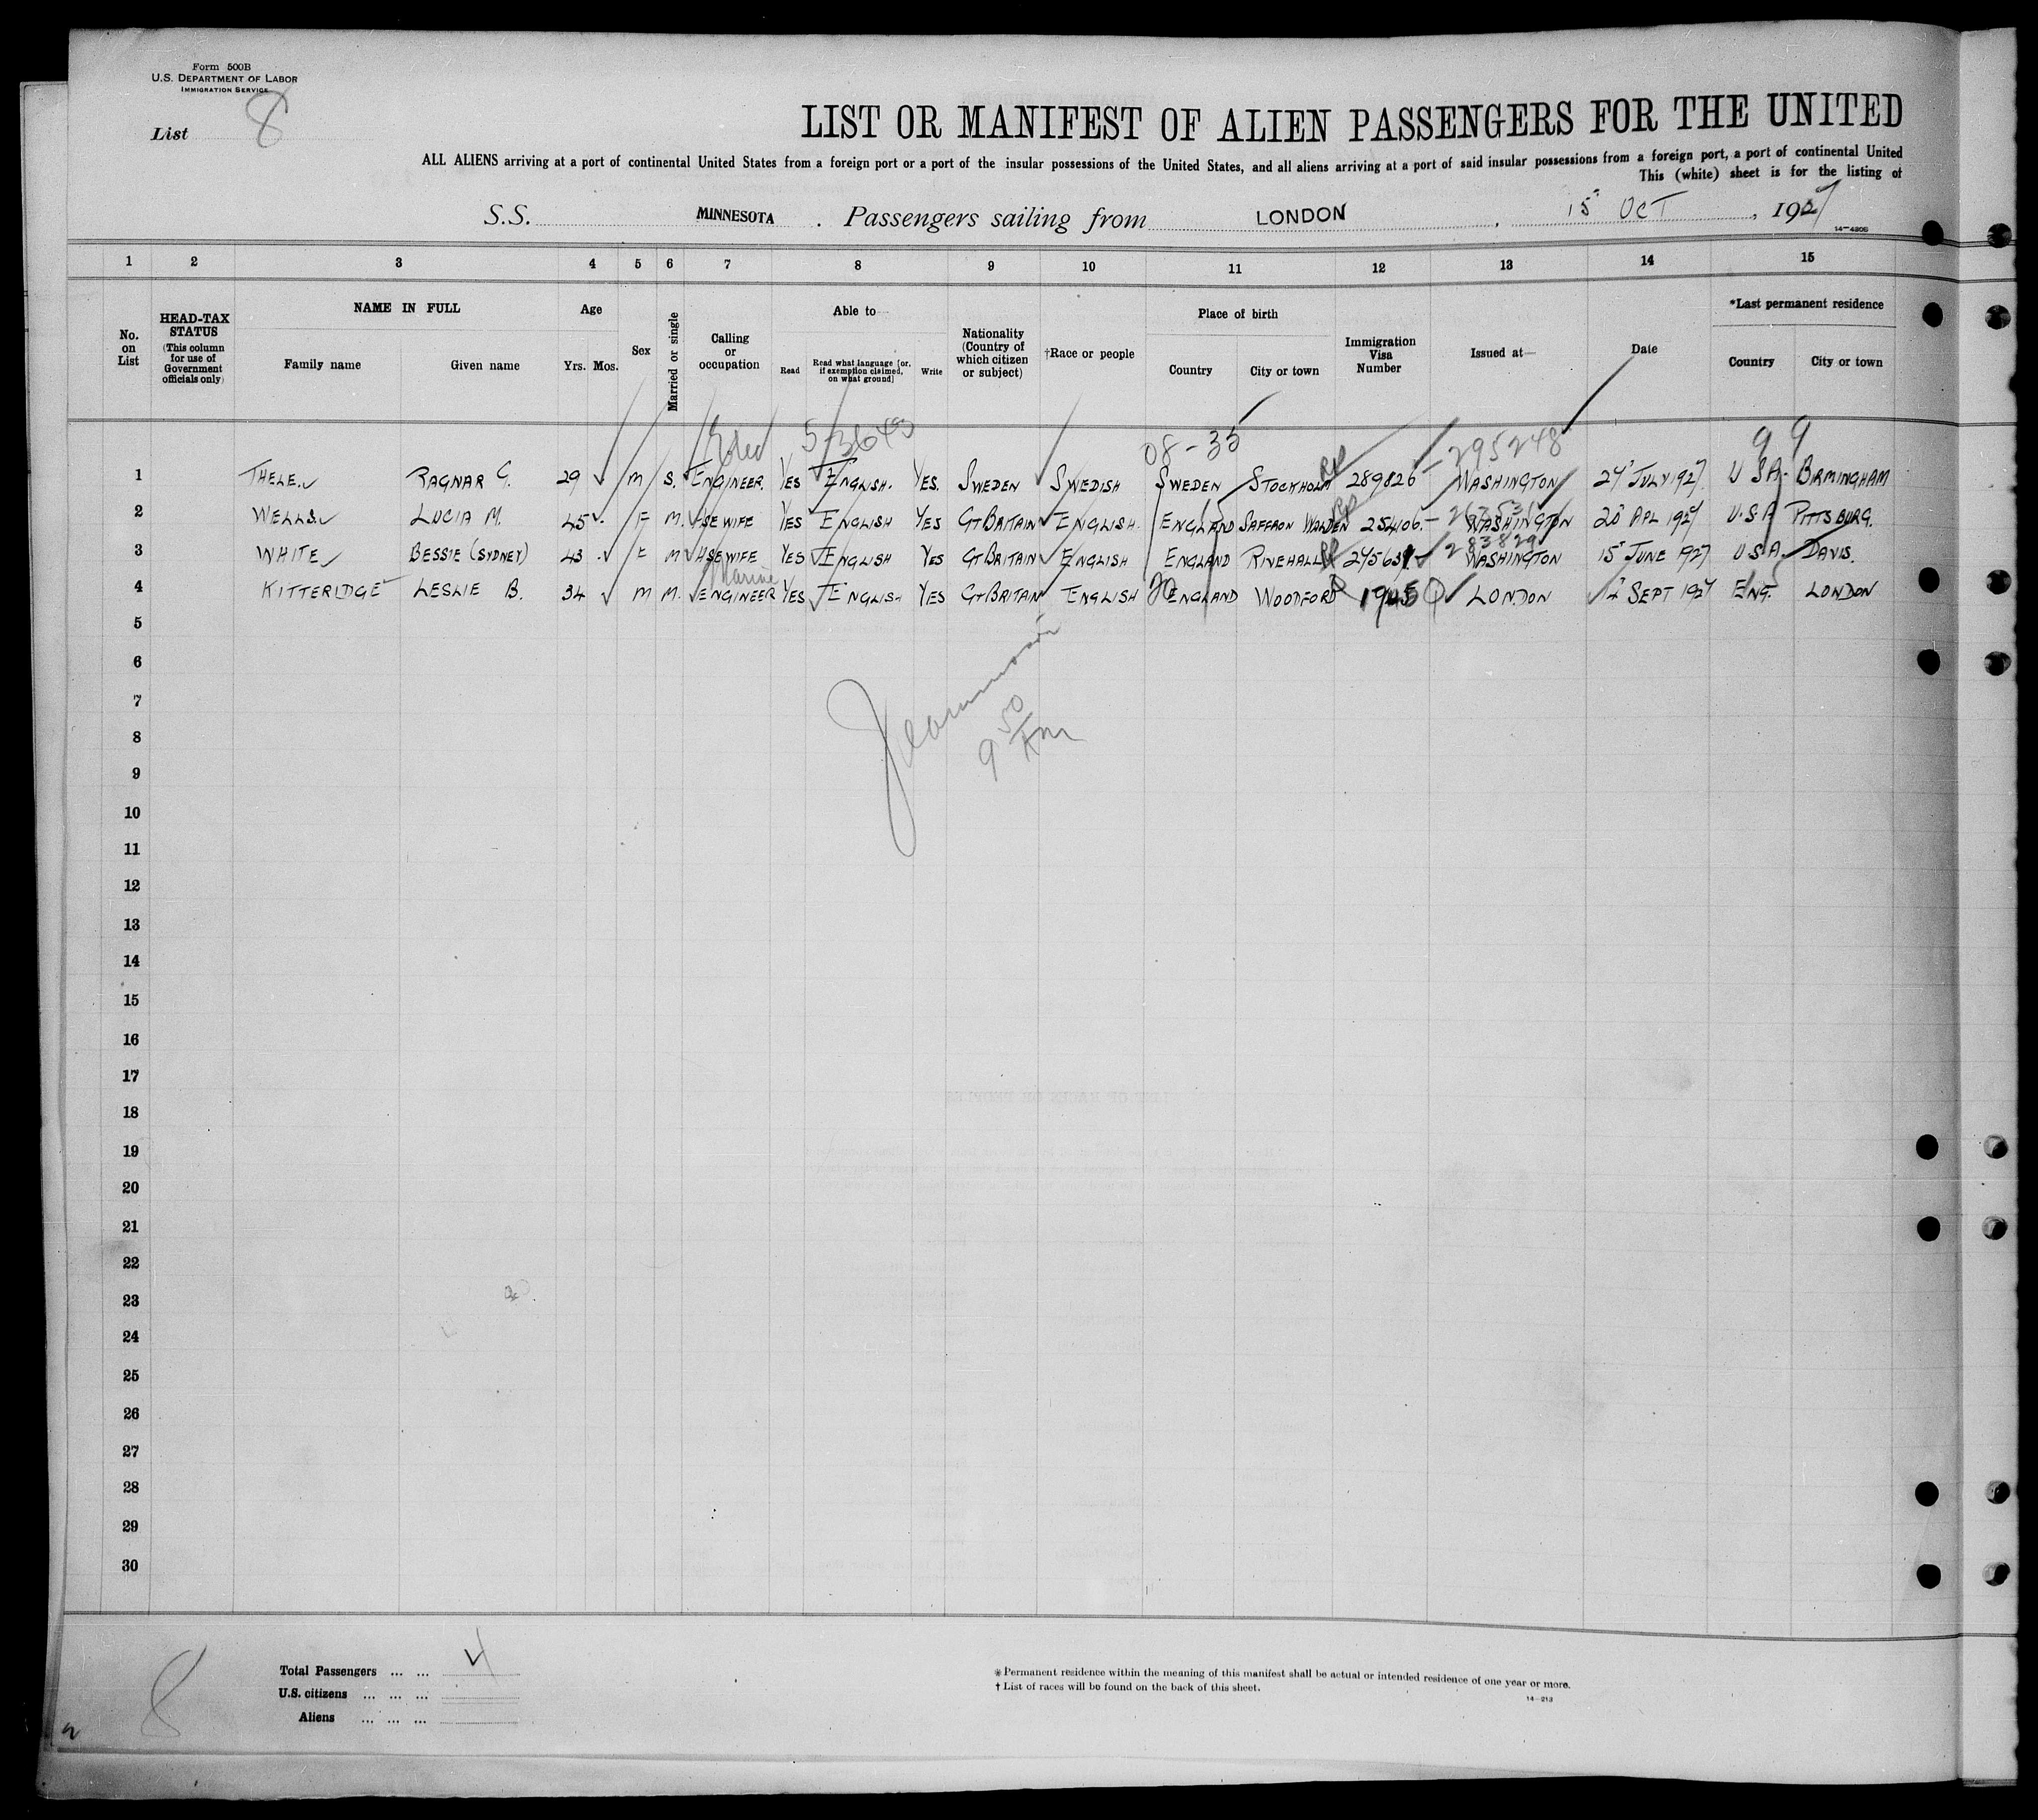 Form 500B
U.S. DEPARTMENT OF LABOR
IMMIGRATION SERVICE
List 8
LIST OR MANIFEST OF ALIEN PASSENGERS FOR THE UNITED
ALL ALIENS arriving at a port of continental United States from a foreign port or a port of the insular possessions of the United States, and all aliens arriving at a port of said insular possessions from a foreign port, a port of continental United
This (white) sheet is for the listing of
S.S. MINNESOTA . Passengers sailing from LONDON , 15 OCT , 1927
14—4206
1 2 3 4 5 6 7 8 9 10 11 12 13 14 15
No. on List
HEAD-TAX STATUS (This column for use of Government officials only)
NAME IN FULL
Family name Given name
Age
Yrs. Mos.
Sex
Married or single
Calling or occupation
Able to
Read Read what language [or, if exemption claimed, on what ground] Write
Nationality (Country of which citizen or subject)
†Race or people
Place of birth
Country City or town
Immigration Visa Number
Issued at
Date
*Last permanent residence
Country City or town
Elec 5-3643 08-35 295248 99
1 THELE. RAGNAR G. 29 M S. ENGINEER. YES ENGLISH. YES. SWEDEN SWEDISH SWEDEN STOCKHOLM 289826 WASHINGTON 27 JULY 1927. USA. BIRMINGHAM
2 WELLS. LUCIA M. 45 F M. HSEWIFE YES ENGLISH YES GT BRITAIN ENGLISH. ENGLAND SAFFRON WALDEN 254106. WASHINGTON 20 APL 1927 U.S.A PITTSBURG.
283829
3 WHITE BESSIE (SYDNEY) 43 F M HSEWIFE YES ENGLISH YES GT BRITAIN ENGLISH ENGLAND RIVEHALL 275631 WASHINGTON 15 JUNE 1927 USA. DAVIS.
Marine
4 KITTERIDGE LESLIE B. 34 M M. ENGINEER YES ENGLISH YES GT BRITAIN ENGLISH ENGLAND WOODFORD 1945 Q LONDON SEPT 1927 ENG. LONDON
5
6
7
8
9
9 50 AM
10
11
12
13
14
15
16
17
18
19
20
21
22
23
24
25
26
27
28
29
30
8
Total Passengers ... ... 4
U.S. citizens ... ... ...
Aliens ... ... ...
* Permanent residence within the meaning of this manifest shall be actual or intended residence of one year or more.
† List of races will be found on the back of this sheet.
14—213